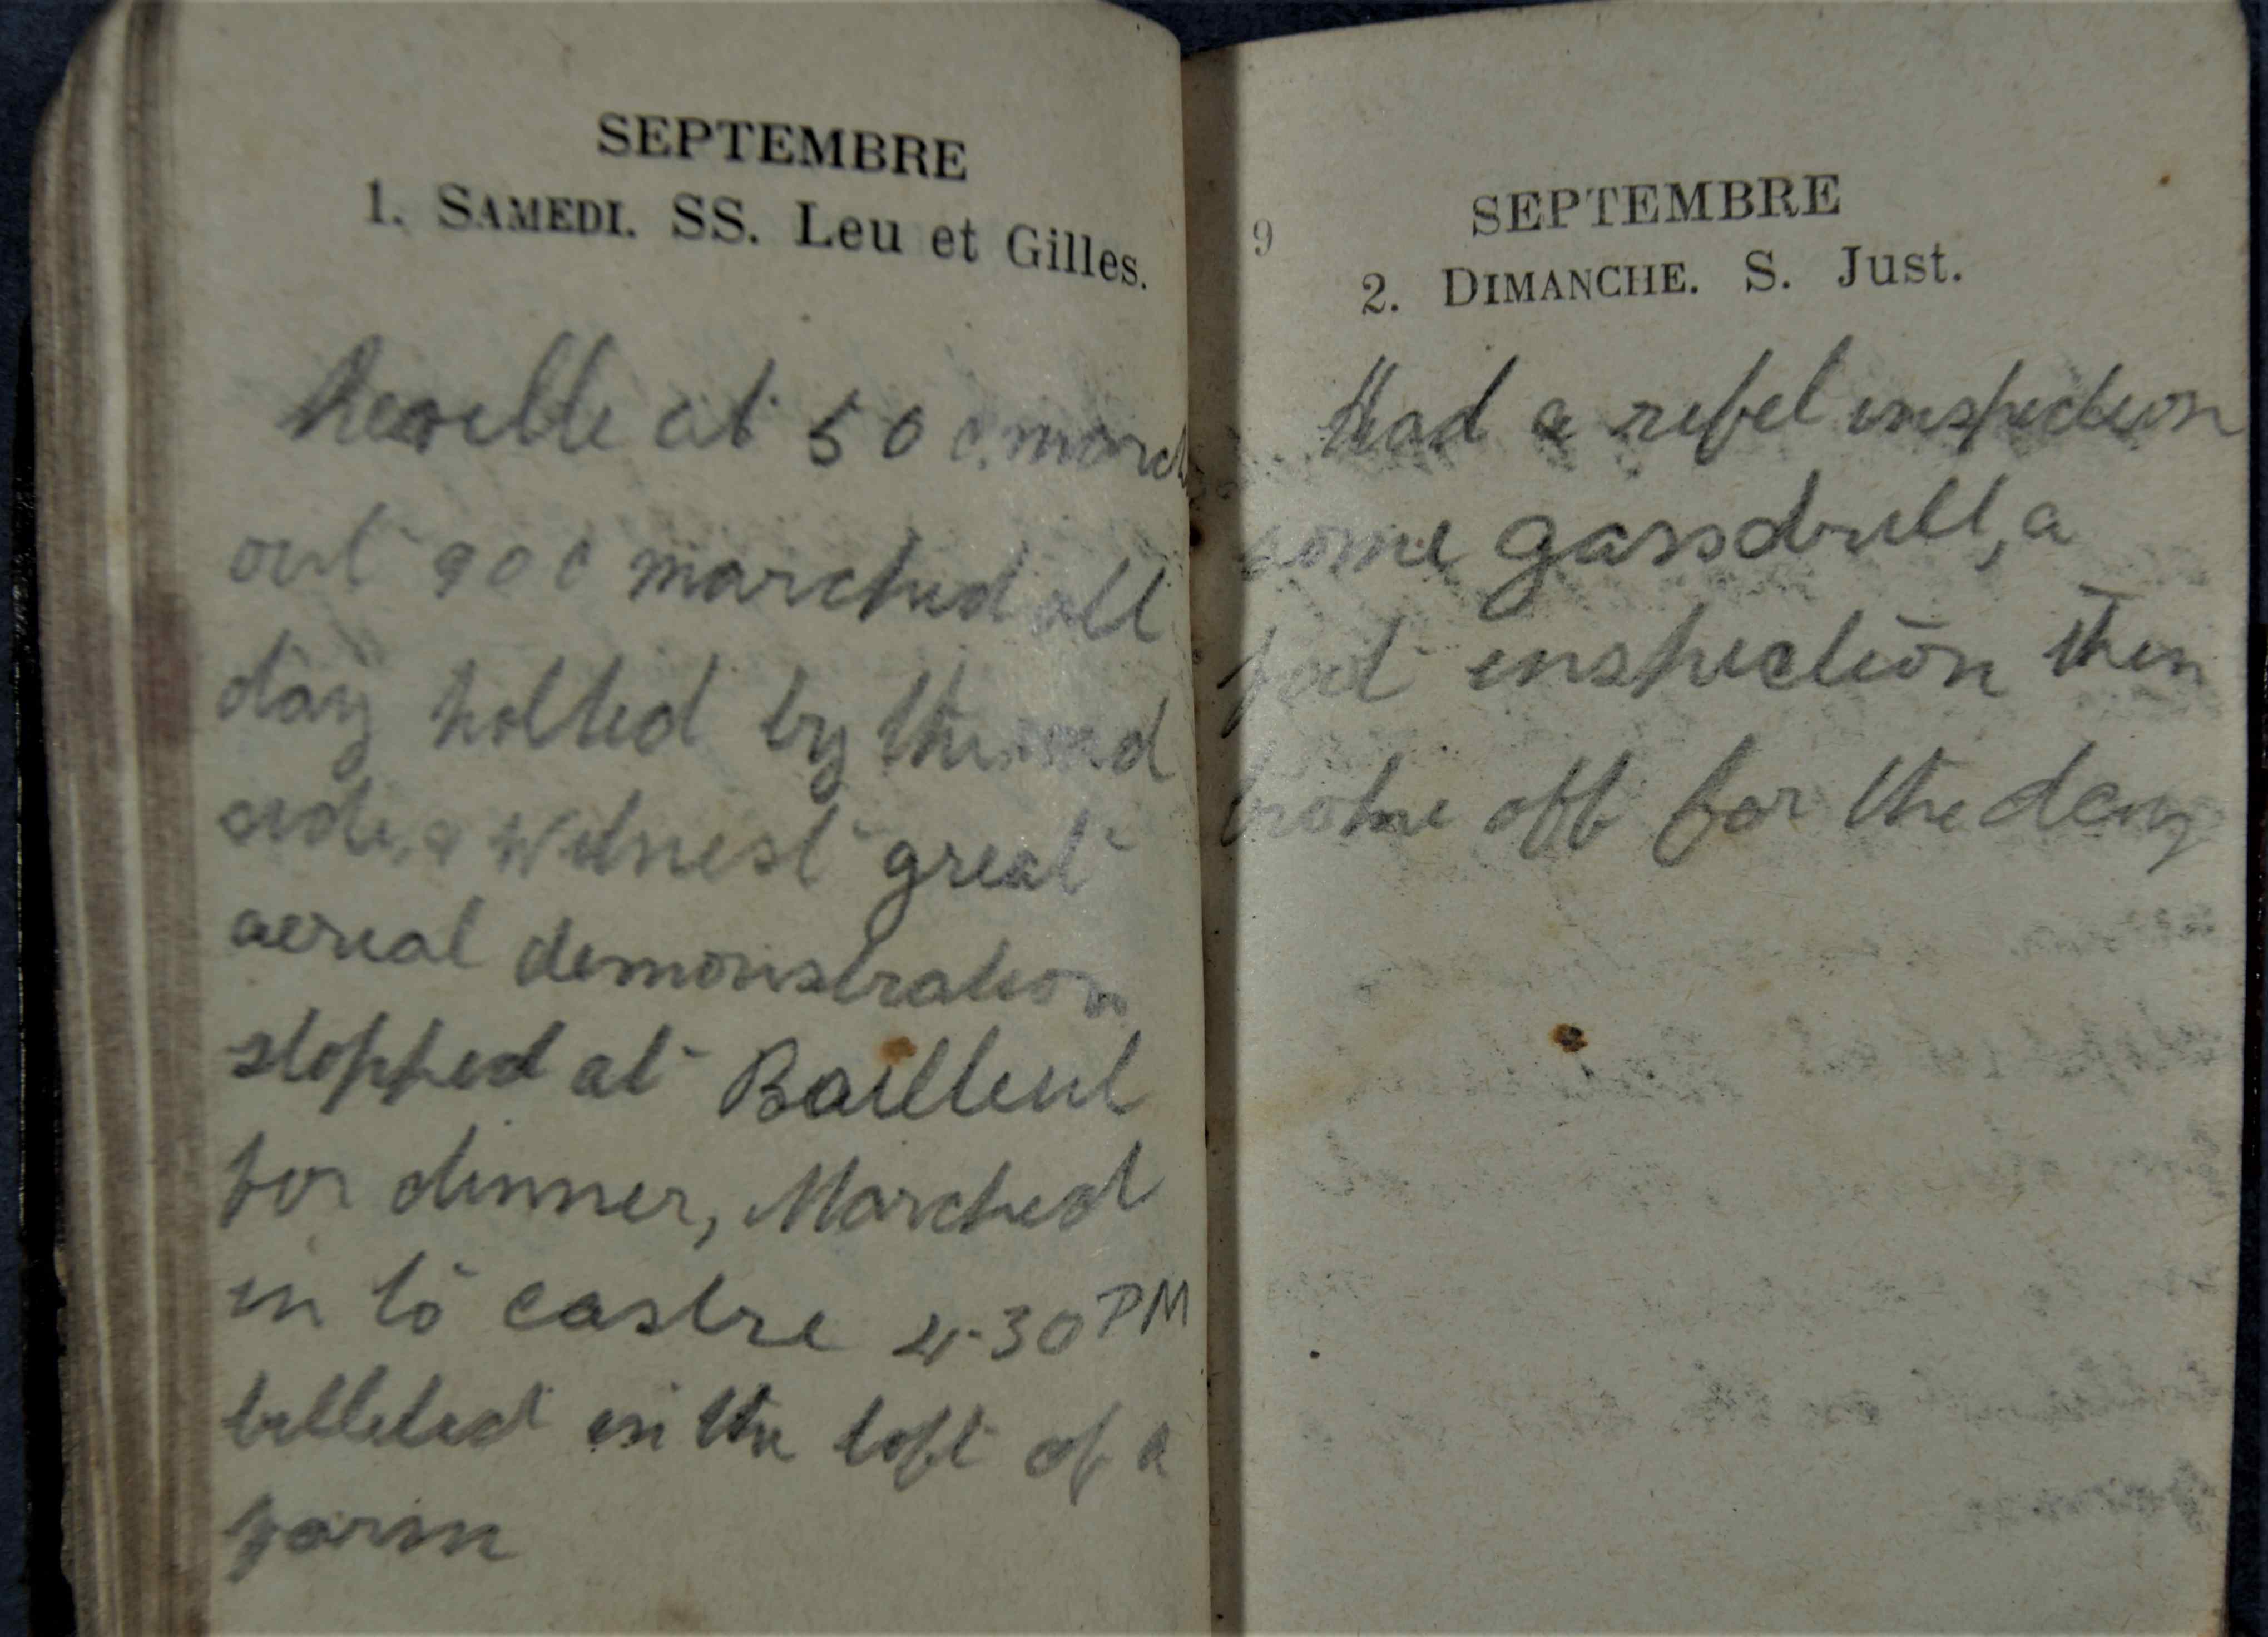 SEPTEMBRE
1. SAMEDI. SS. Leu et Gilles.
at 5 0 0. march
out 9 0 0 marched all
day holted by the road
side, & Witnest great
aerial demonstration
stopped at Bailleul
for dinner, Marched
in to castre 4-30 PM
billeted in the loft of a
farm
9
SEPTEMBRE
2. DIMANCHE. S. Just.
Had a rifel inspection
some gassdrill, a
feet inspection then
broke off for the day